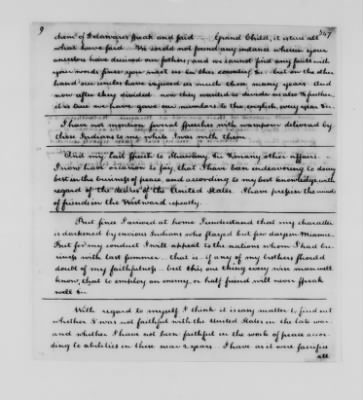 9
347
them of Delawares speak and said Grand Child, it is true all
what have said We could not found any instance wherein your
ancestors have deceived our fathers, and we cannot find any fault with
your words since you met us in this council &c but on the other
hand our uncles have injured us much these many years And
now after they divided now they wanted to divide us also &
it is true we have gave our numbers to the english every year &c
I have not mention several speeches with wampum delivered by
these Indians to me while I was with them
And my last speech to Shawany &c &c many other affairs.
I now have occasion to say, that I have been endeavoring to do my
best in the business of peace and according to my best knowledge with
regard of the desires of the United States. I have press the minds
of friends in the Westward repeatly.
But since I arrived at home I understand that my character
is darkened by envious Indians who stayed but few days in Miamie.
But for my conduct I will appeal to the nations whom I had bu
siness with last summer that is if any of my brothers should
doubt of my faithfulness but this one thing every wise man will
know, that to employ an enemy or half friend will never speak
well &c
With regard to myself I think it is easy matter to find out
whether I was not faithful with the United States in the late war
and whether I have not been faithful in the work of peace accor
ding to abilities in these near 2 years. I have as it were sacrifice
all